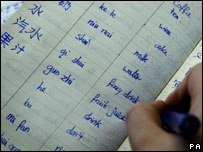 水
汽水
果汁
ke le
niu nai
shui
qi shui
guo zhi
he
bu
ma fan
Coffee
Tea
milk
cola
water
fizzy drink
fruit juice
drink
don't
PA